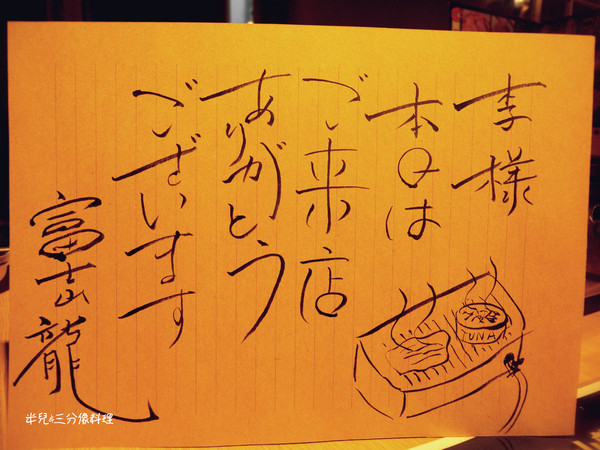 李様
本日は
ご来店
ありがとう
ございます
富士龍
TUNA
半兒の三分像料理